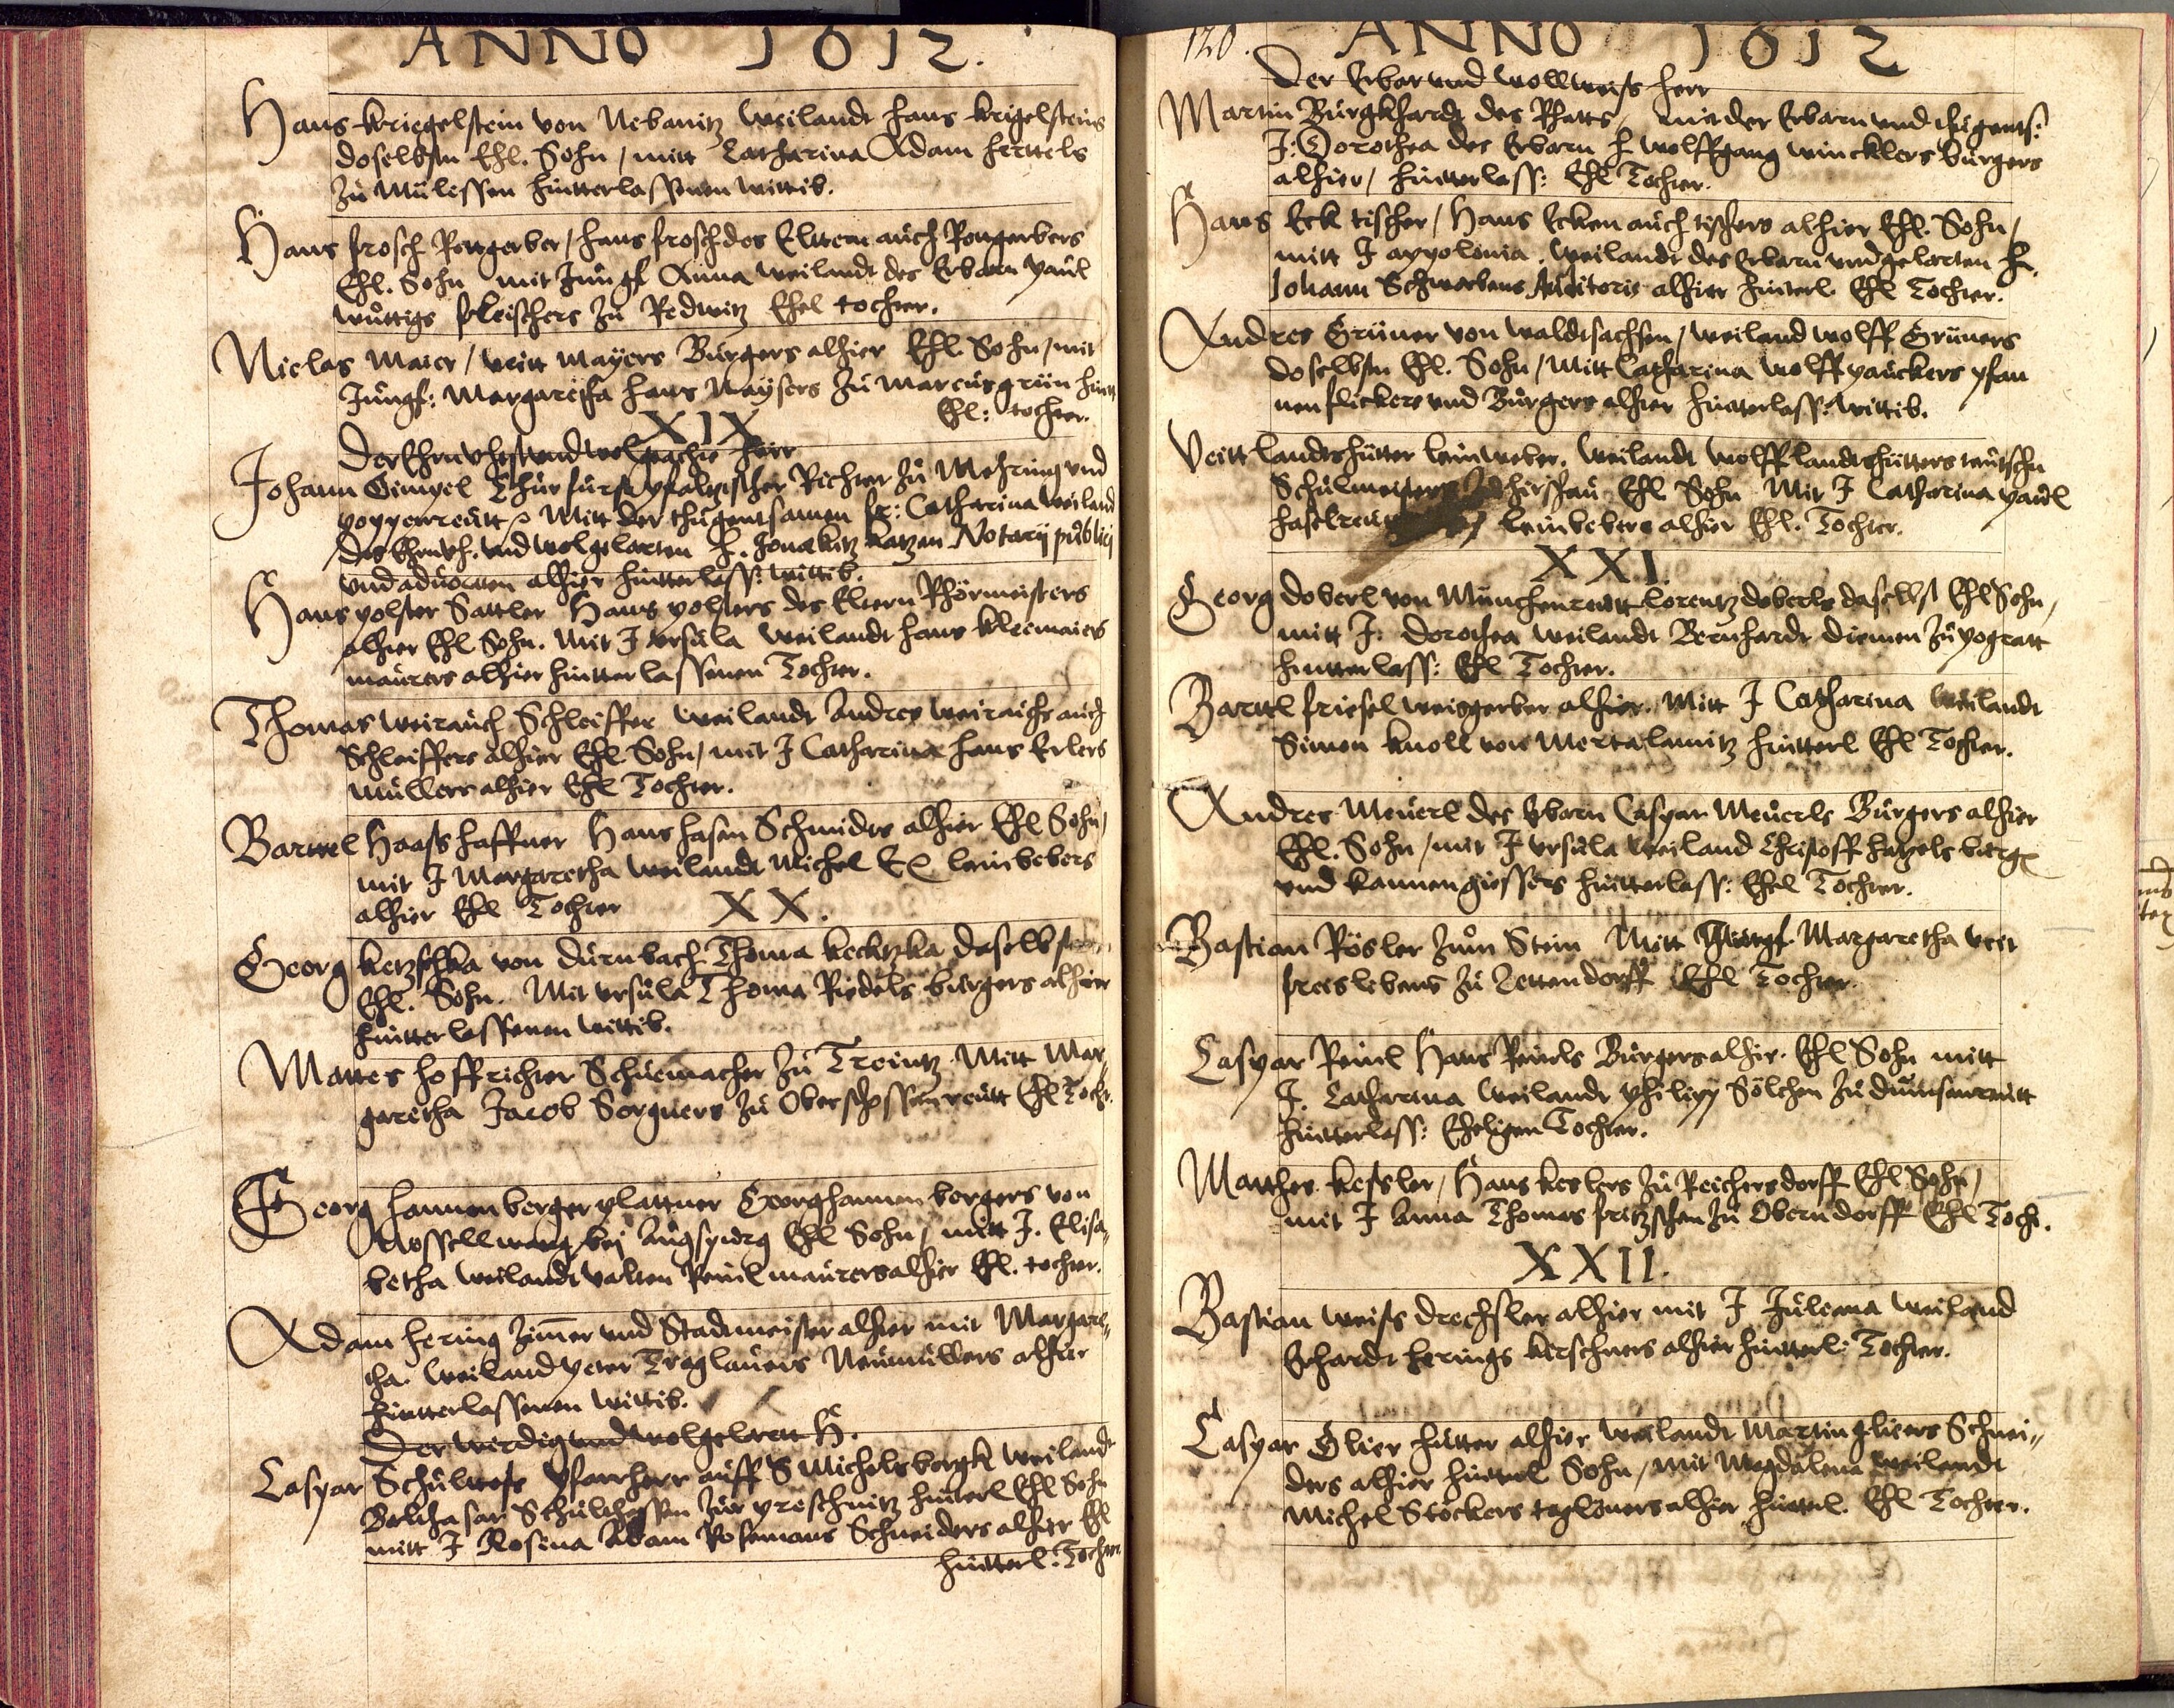 ANNO 1612.
Hans Kriegelstein von Nebanitz Weilandt Hans Krigelsteins
doselbsten Ehl. Sohn / mitt Catharina Adam Herttels
zu Mülessen hintterlassenen Wittib.
Hans Frosch Rottgerber / Hans Frosch des Eltern auch Rottgerbers
Ehl. Sohn mit Jungf Anna Weilandt des Erbarn Paul
Wuttigs Fleischers zu Redwitz Ehel tochter.
Niclas Maier / Veitt Mayers Bürgers alhier Ehl Sohn / mit
Jungf: Margaretha Hans Maysers zu Marcusgrün
Ehl: tochter.
XIX
Der Ehrnvhest und Wolgeachte Herr
Johann Gimpel Chürfürst Pfaltzischer Richter zu Mehring und
Poppenreütt Mitt der thugentsamen Fr: Catharina Weiland
des Ehrnvh. und Wolgelarten H. Katzen Notarij publicj
und advocaten alhier hintterlass: Wittib.
Hans Polster Sattler Hans Polsters des Eltern Rhörmeisters
alhier Ehl Sohn. Mit J Ursula Weilandt Hans Kleemaiers
Maurers alhier hintterlassenen Tochter.
Thomas Weirauch Schleiffer Weilandt Andres Weirauchs auch
Schleiffers alhier Ehl Sohn / mit J Catharina Hans Erlers
Müllers alhier Ehl Tochter.
Barttel Haass Haffner Hans Hasen Schmides alhier Ehl Sohn /
mit J Margaretha Weilandt Michel leinbebers
alhier Ehl Tochter
XX.
Georg Ketzschka von Dürnbach Thoma daselbsten
Ehl. Sohn. Mit Ursula Thoma Riedels bürgers alhier
hintterlassenen Wittib.
Mattes Hoffrichter Schuemacher zu Treünitz Mitt Mar
garetha Jacob Sorgners zu Oberschossenreütt Ehl Tocht.
Georg Hannenberger Plattner Georg Hannenbergers von
bei Augspurg Ehl Sohn / mitt J. Elisa
betha Weilandt Valten Reinl maurers alhier Ehl. tochter.
Adam Hering Zimer und Stadtmeister alhier mit Margare
tha Weiland Peter Traglauers Neumüllers alhier
hintterlassenen Wittib.
Der Wirdig und Wolgelertt H.
Caspar Schultess Pfarrherr auff S Michelsbergk Weilandt
Balthasar Schulthessen zur Preschnitz hinterl Ehl Sohn
mitt J Rosina Adam Rosemans Schneiders alhier Ehl
hintterl. Tochter
120.
ANNO 1612
Der Erbar und Wollweiss Herr
Martin Burgkhardt des Rhatts / mit der Erbarn und thugents:
J: Dorothea des Erbarn H Wolffgang Wincklers bürgers
alhier / hintterlass: Ehl Tochter.
Hans Eck tischer / Hans Ecken auch tischers alhier Ehl. Sohn /
mitt J Appolonia. Weilandt des Erbarn und gelarten H.
Johann Schwabens alhier hinterl Ehl Tochter.
Andres Grüner von Waldtsachsen / Weiland Wolff Grüners
doselbsten Ehl. Sohn / Mitt Catharina Wolff Pauckers Pfan
nenflickers und Bürgers alhier hintterlass: Wittib.
Veitt Landtshütter leinweber. Weilandt Wolff Landtshütters teütschn
Schulmeisters Ehl Sohn Mit J Catharina Paul
leinbebers alhier Ehl. Tochter.
XXI
Georg Doberl von Münchenreütt Lorentz Doberls daselbst Ehl Sohn /
mitt J: Dorothea Weilandt Bernhardt Diemen zu Pograth
hintterlass: Ehl Tochter.
Barttl Friesel Weisgerber alhier. Mitt J Catharina Weilandt
Simon Knoll von Mertalamitz hintterl Ehl Tochter.
Andres Meüerl des Erbarn Caspar Meüerls Bürgers alhier
Ehl. Sohn / mit J Ursula Weiland Christoff burg
und Kannengiessers hintterlass: Ehel Tochter.
Bastian Rösler zum Stein Mitt Jungf Margaretha Veit
Freislebens zu Lettendorff Ehl Tochter.
Caspar Reinl Hans Reinls Bürgers alhir. Ehl Sohn mitt
J. Catharina Weilandt Philipp Sölchen zu
hintterlass: Eheligen Tochter.
Matthes Kessler / Hans Keslers zu Reichersdorff Ehl Sohn /
mit J Anna Thomas Fritzschen zu Oberndorff Ehl Tocht.
XXII.
Bastian Weiss drechsler alhier mit J Juliana Weiland
Erhardt Herings Kirschners alhier hintterl: Tochter.
Caspar Glier Hutter alhier Weilandt Martin Gliers Schnei
ders alhier hinterl Sohn / mit Magdalena Weilandt
Michel Stöckers taglöners alhier hinterl. Ehl Tochter.